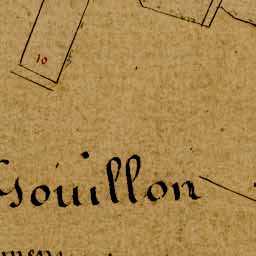 10
Gouillon